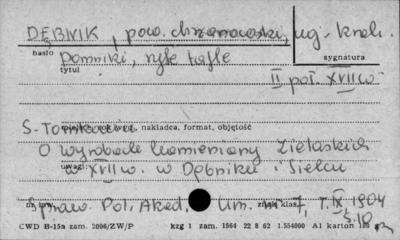 DĘBNIK, pow. chrzanowski, ug. krak.
hasło
Pomniki, ryte tafle sygnatura
tytuł
II poł. XVII w
S. Tomkowicz nakładca, format, objętość
O wyrobach kamieniarzy żelaskich
w XVII w. w Dębniku i Sielcu
Spraw. Pol. Akad. Um. T. IX 1904
CWD B-15a zam. 2006/ZW/P kzg 1 zam. 1564 22 8 62 1.554000 A1 karton